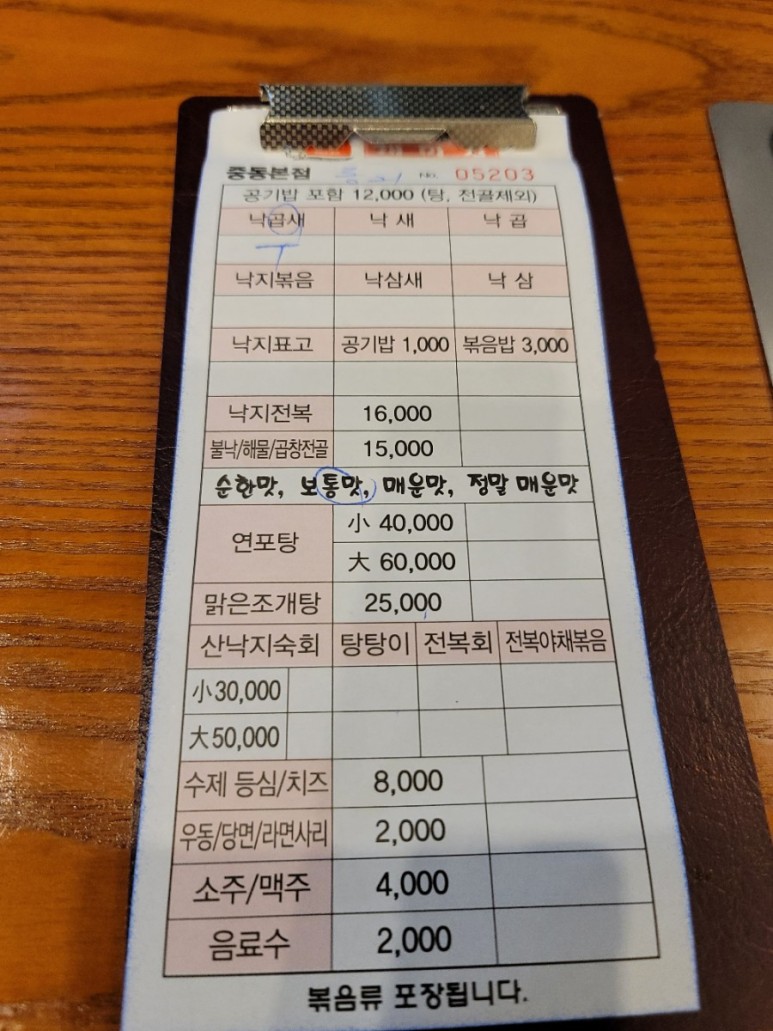 중동본점 No. 05203
공기밥 포함 12,000 (탕, 전골제외)
낙곱새 낙새 낙곱
T
낙지볶음 낙삼새 낙삼
낙지표고 공기밥 1,000 볶음밥 3,000
낙지전복 16,000
불낙/해물/곱창전골 15,000
순한맛, 보통맛, 매운맛, 정말 매운맛
연포탕 小 40,000
大 60,000
맑은조개탕 25,000
산낙지숙회 탕탕이 전복회 전복야채볶음
小30,000
大50,000
수제 등심/치즈 8,000
우동/당면/라면사리 2,000
소주/맥주 4,000
음료수 2,000
볶음류 포장됩니다.